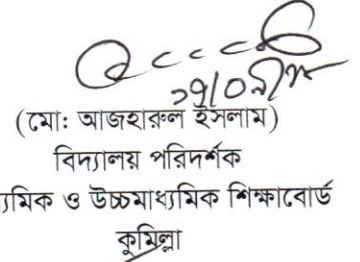 (মো: আজহারুল ইসলাম)
বিদ্যালয় পরিদর্শক
ধ্যমিক ও উচ্চমাধ্যমিক শিক্ষাবোর্ড
কুমিল্লা